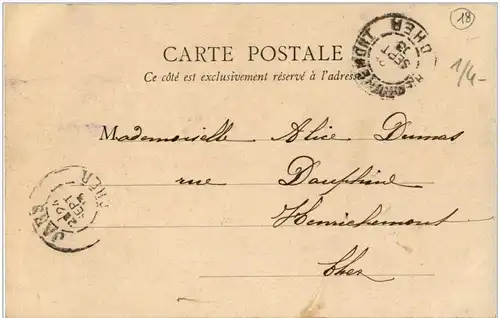 18
CARTE POSTALE
Ce côté est exclusivement réservé à l'adresse
1/4-
CHER
SEPT
Mademoiselle Alice Dumas
rue Dauphine
Henrichemont
Cher
JARS
CHER
SEPT